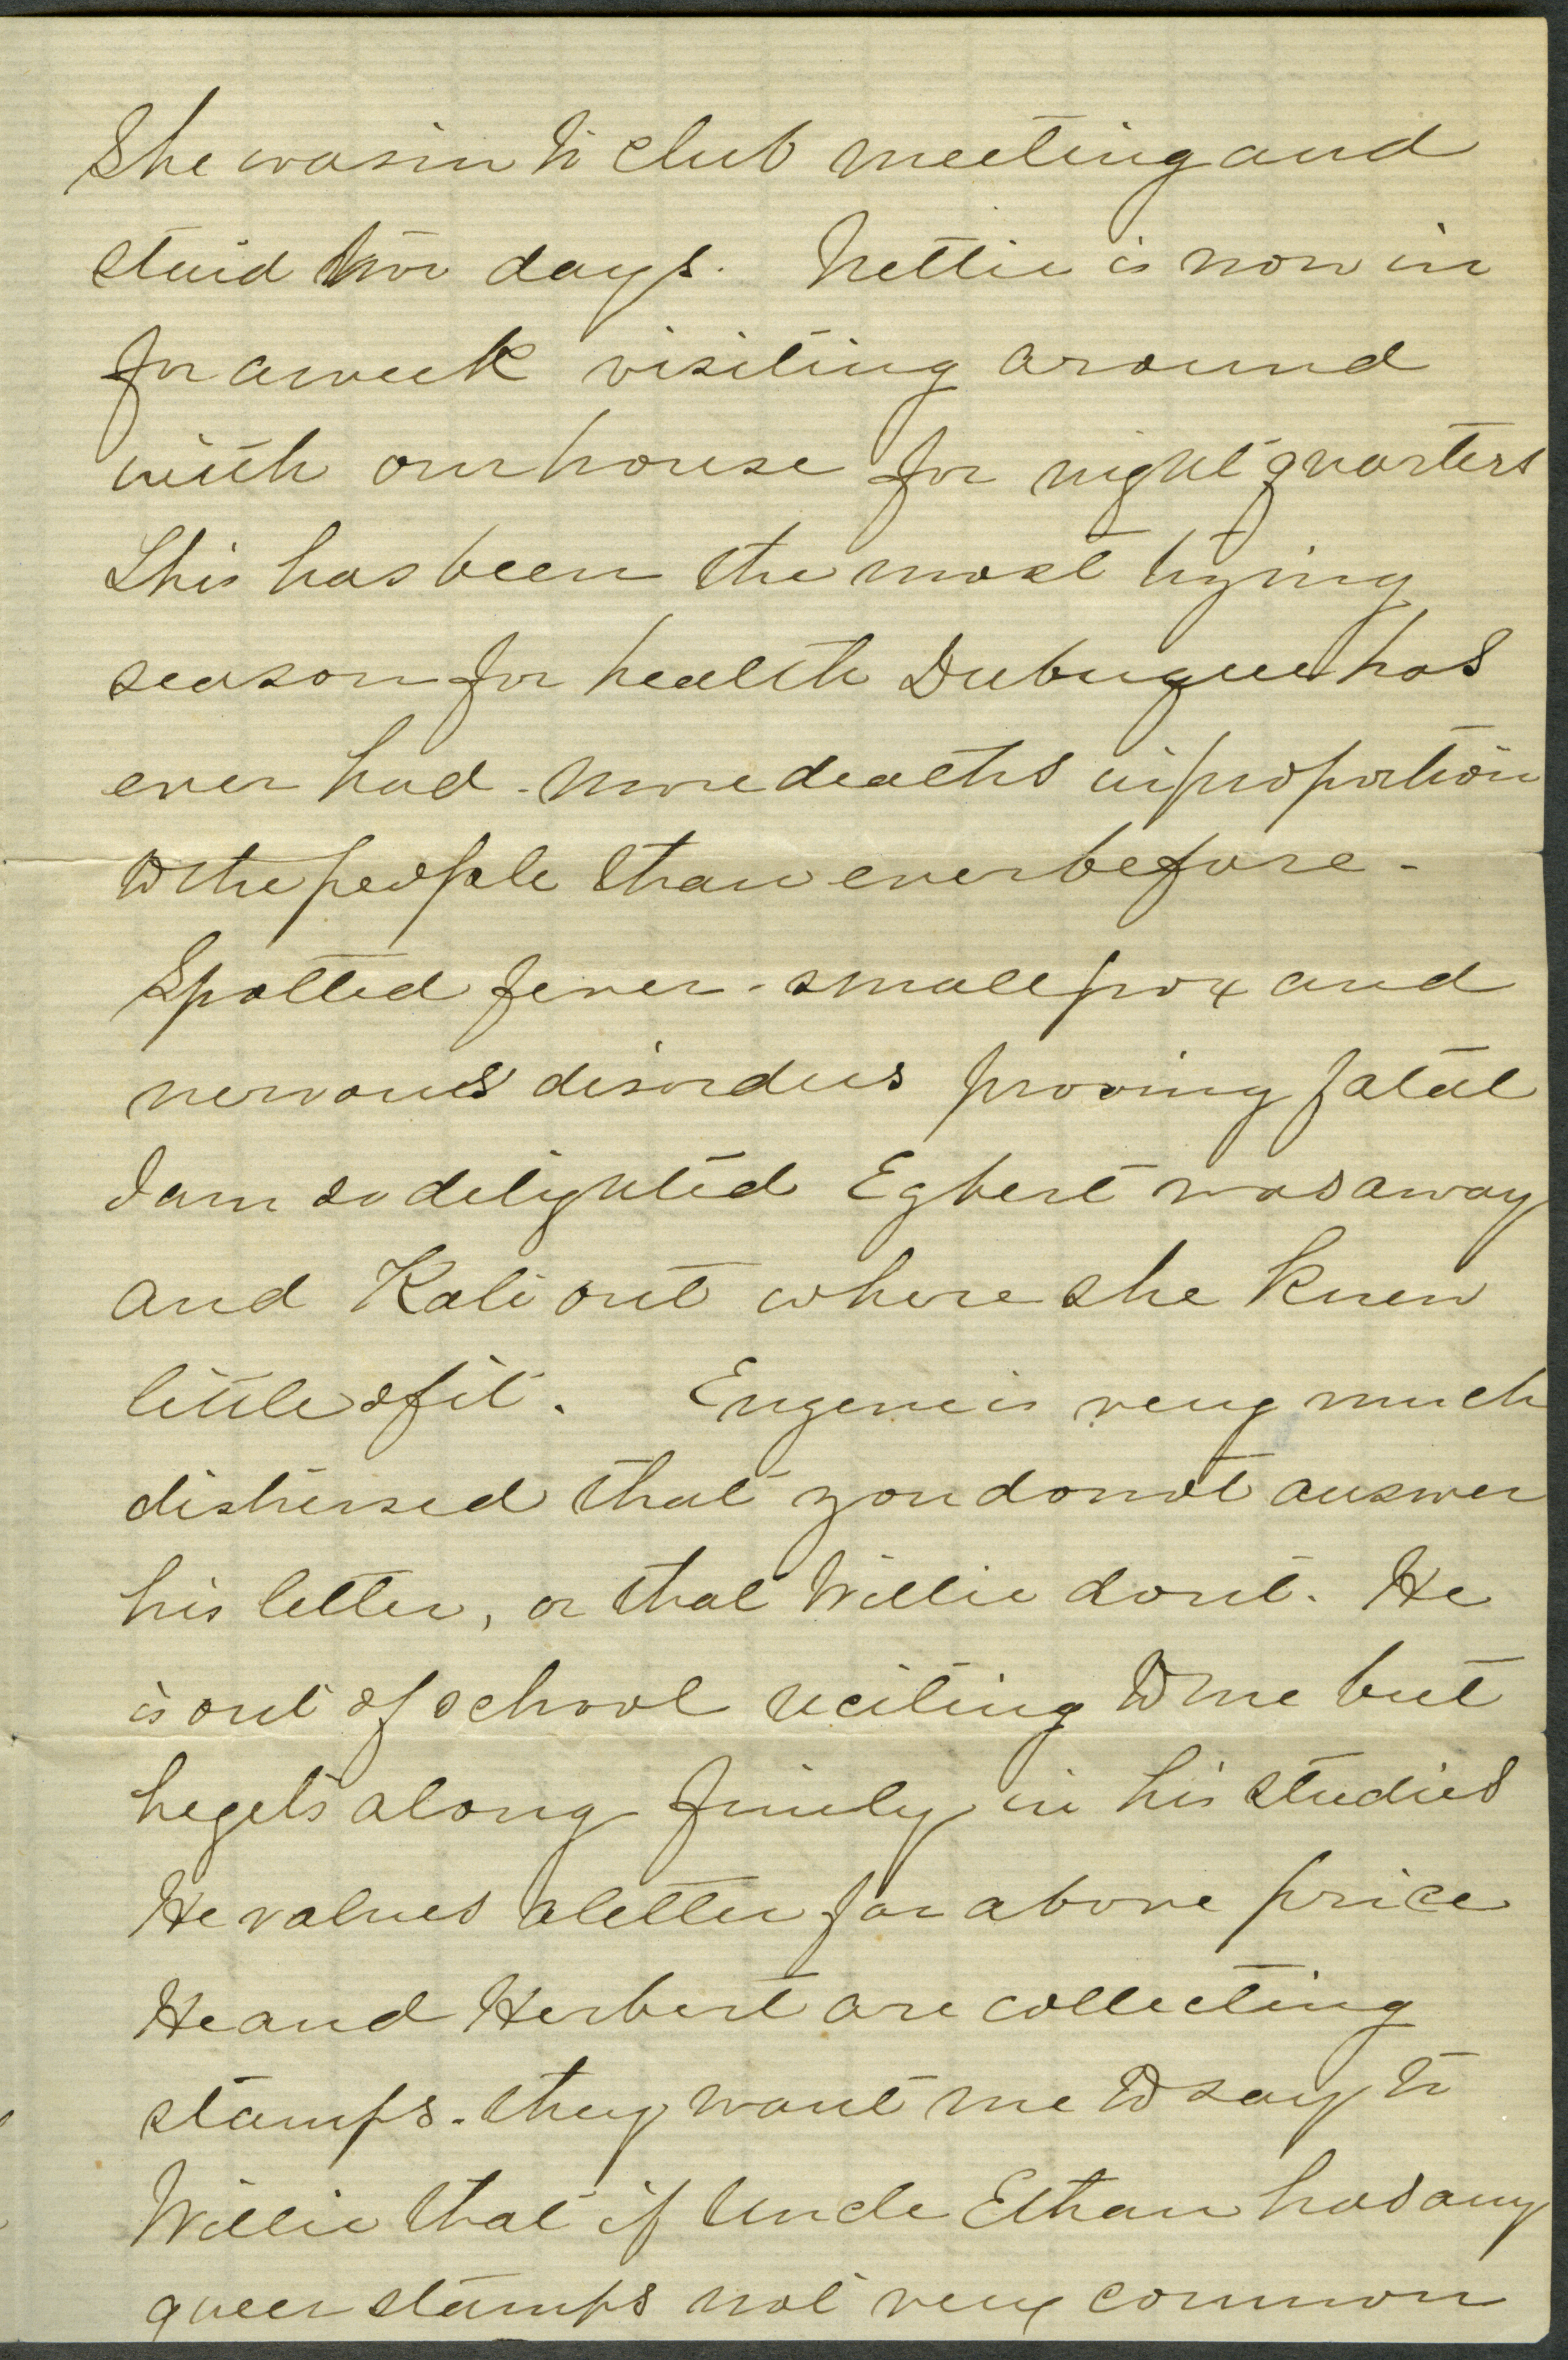 She was in to club meeting and
staid two days. Nettie is now in
for a week visiting around
with our house for night quarters
This has been the most trying
season for health Dubuque has
ever had - more deaths in proportion
to the people than ever before -
Spotted fever - small pox and
nervous disorders proving fatal
I am so delighted Egbert was away
and Kate out where she knew
little of it. Eugene is very much
distressed that you do not answer
his letter, or that Willie dont. He
is out of school reciting to me but
he gets along finely in his studies
He values a letter far above price
He and Herbert are collecting
stamps - they want me to say to
Willie that if Uncle Ethan has any
queer stamps not very common